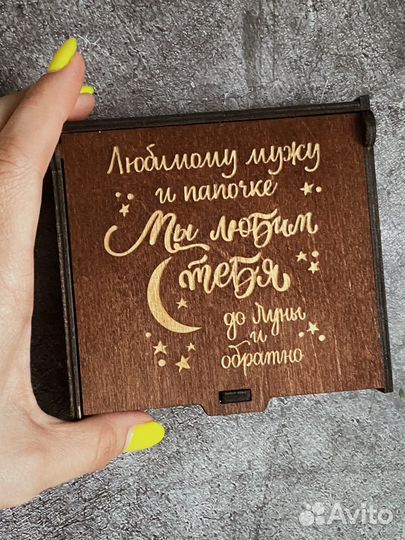 Любимому мужу
и папочке
Мы любим
тебя
до Луны
и
обратно
Avito